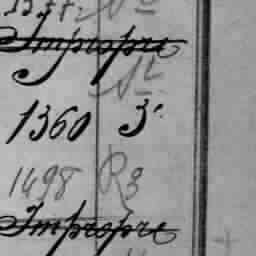 1577.
Impropre
1360 3.
1498 R3
Impropre